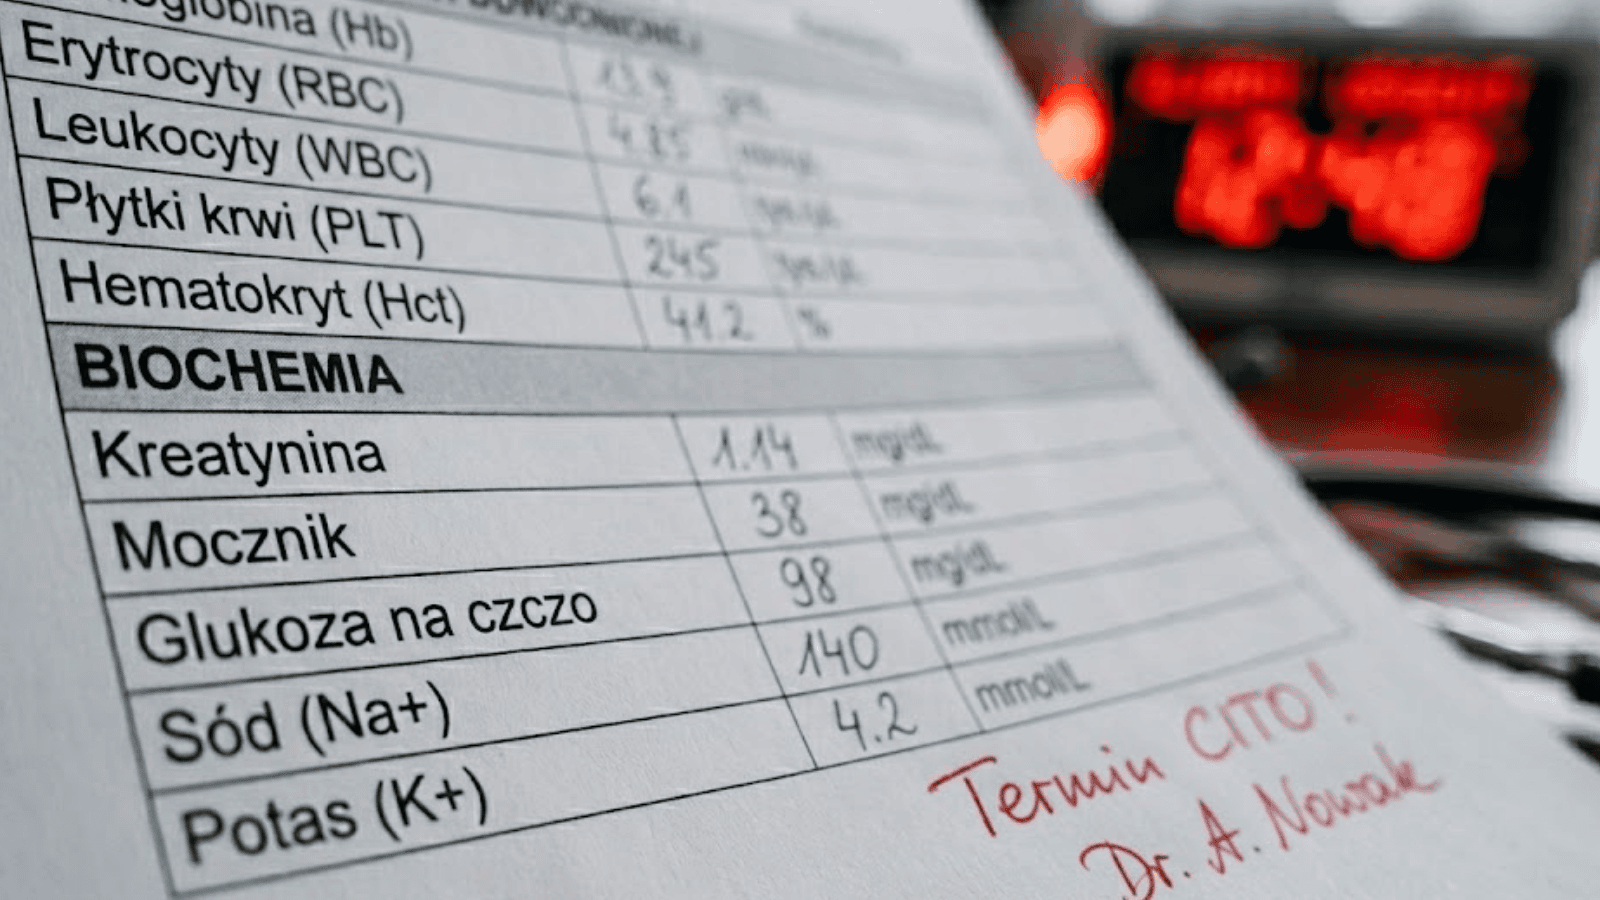 (Hb) 13.9
Erytrocyty (RBC) 4.85
Leukocyty (WBC) 6.1
Płytki krwi (PLT) 245
Hematokryt (Hct) 41.2 %
BIOCHEMIA
Kreatynina 1.14 mg/dL
Mocznik 38 mg/dL
Glukoza na czczo 98 mg/dL
Sód (Na+) 140 mmol/L
Potas (K+) 4.2 mmol/L
Termin CITO!
Dr. A. Nowak